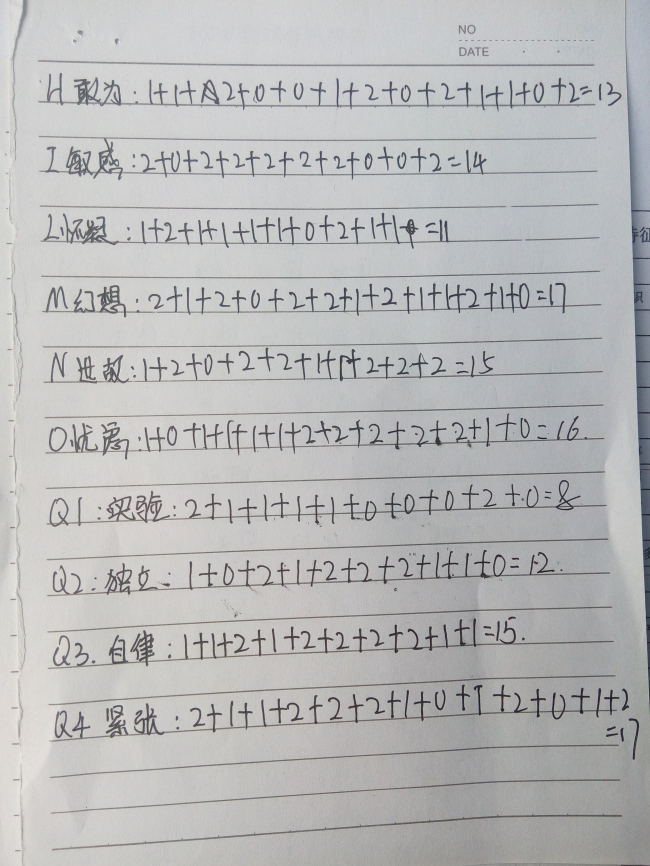 NO
DATE
H敢为:1+1+2+0+0+1+2+0+2+1+1+0+2=13
I敏感:2+0+2+2+2+2+2+0+0+2=14
L怀疑:1+2+1+1+1+1+0+2+1+1=11
M幻想:2+1+2+0+2+2+1+2+1+1+2+1+0=17
N世故:1+2+0+2+2+1+1+2+2+2=15
O忧虑:1+0+1+1+1+1+2+2+2+2+2+1+0=16.
Q1:实验:2+1+1+1+1+0+0+0+2+0=8
Q2:独立:1+0+2+1+2+2+2+1+1+0=12.
Q3.自律:1+1+2+1+2+2+2+2+1+1=15.
Q4紧张:2+1+1+2+2+2+1+0+1+2+0+1+2
=17
特征
识